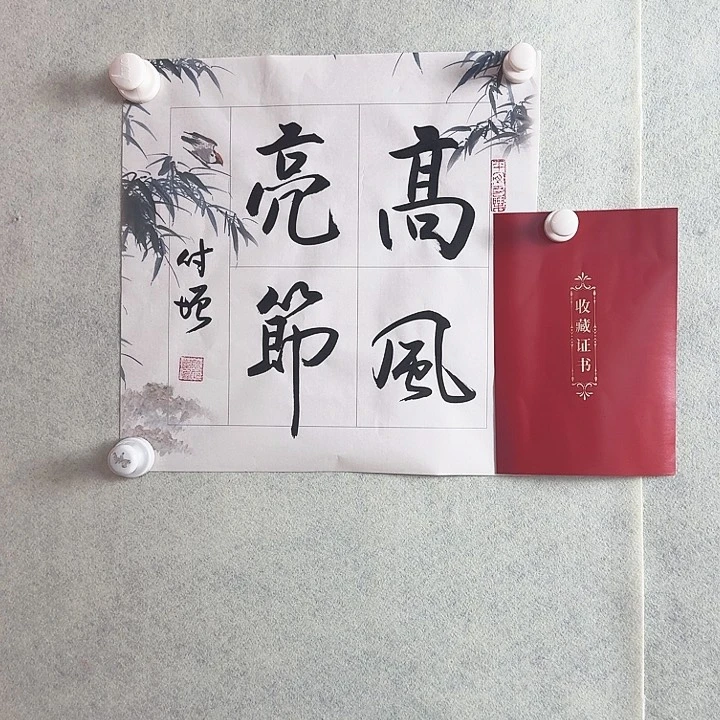 高風
亮節
付增
收藏证书